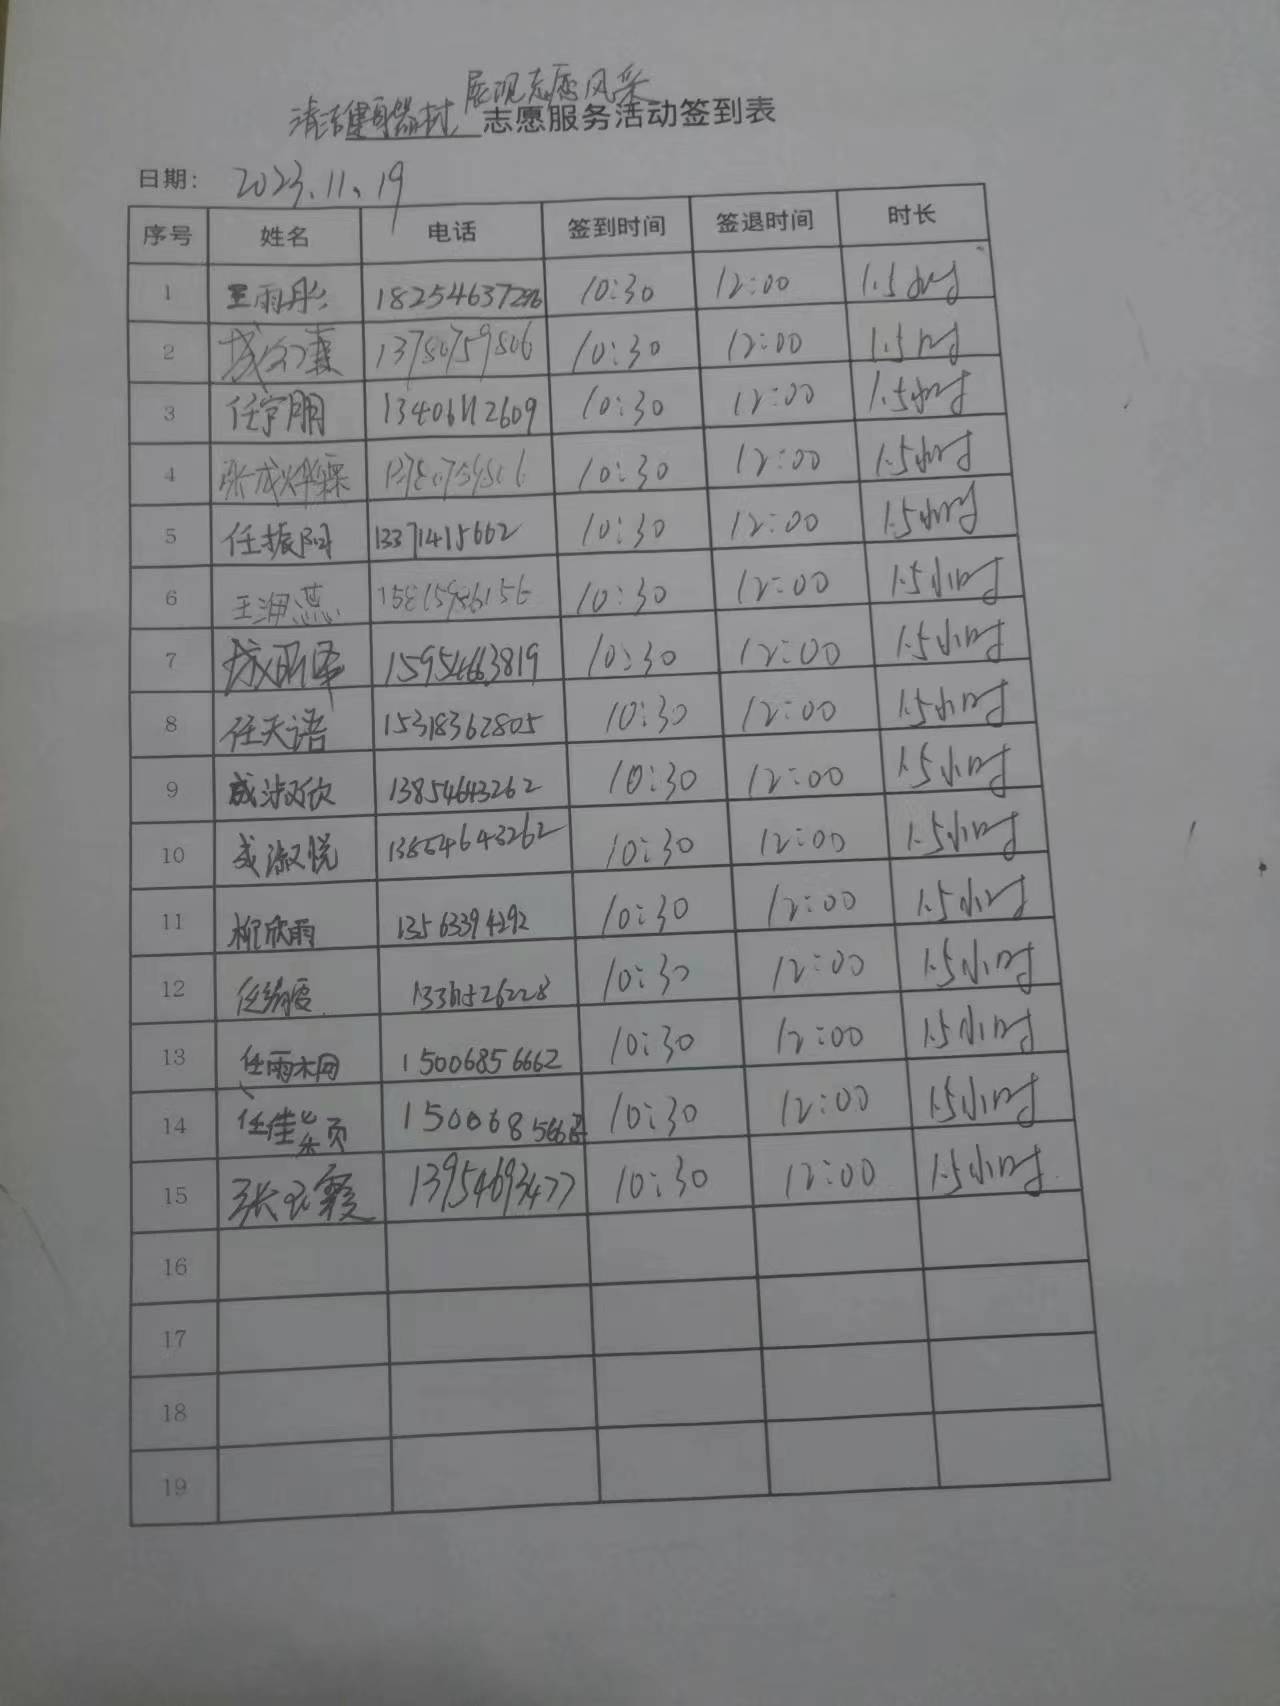 展现志愿风采
清洁健身器材, 志愿服务活动签到表
日期: 2023.11.19
序号 姓名 电话 签到时间 签退时间 时长
1 王雨彤 18254637296 10:30 12:00 1.5小时
2 13780759806 10:30 12:00 1.5时
3 任宇朋 13406112609 10:30 12:00 1.5小时
4 张成烨霖 13780759806 10:30 12:00 1.5小时
5 任振阳 13371415662 10:30 12:00 1.5小时
6 王海燕 10:30 12:00 1.5小时
7 成昭泽 15954663819 10:30 12:00 1.5小时
8 任天语 15318362805 10:30 12:00 1.5小时
9 成淑欣 13854643262 10:30 12:00 1.5小时
10 成淑悦 13854643262 10:30 12:00 1.5小时
11 柳欣雨 13563394292 10:30 12:00 1.5小时
12 10:30 12:00 1.5小时
13 任雨桐 15006856662 10:30 12:00 1.5小时
14 任佳颖 10:30 12:00 1.5小时
15 张玉霞 13954693477 10:30 12:00 1.5小时.
16
17
18
19